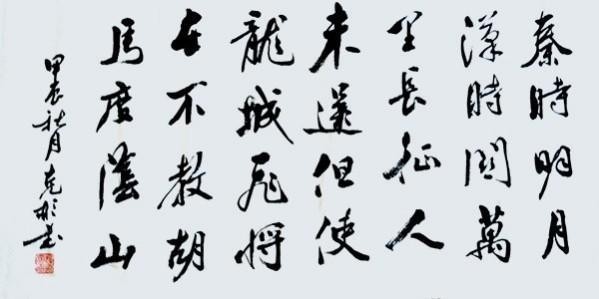 秦時明月
漢時關萬
里長征人
未還但使
龍城飛將
在不教胡
馬度陰山
甲辰秋月克彬书